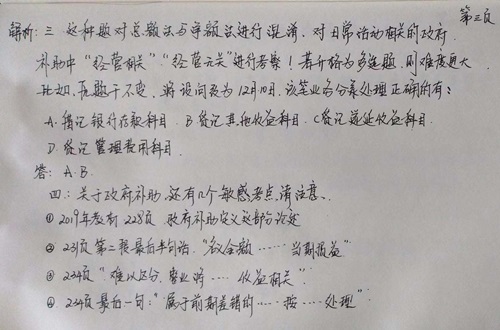 第三页
解析：三 这种题对总额法与净额法进行混淆，对日常活动相关的政府
补助中"经营相关""经营无关"进行考察！若升格为多选题，则难度更大
比如，原题干不变，将设问改为12月10日，该笔业务分录处理正确的有：
A.借记银行存款科目 B贷记其他收益科目 C贷记递延收益科目
D.贷记管理费用科目
答：A.B.
四：关于政府补助，还有几个敏感考点，请注意、
①2019年教材228页 政府补助定义这部分论述
②231页第二段最后半句话："名义金额……当期损益"
③234页"难以区分，企业将……收益相关"
④234页最后一句："属于前期差错的……按……处理"